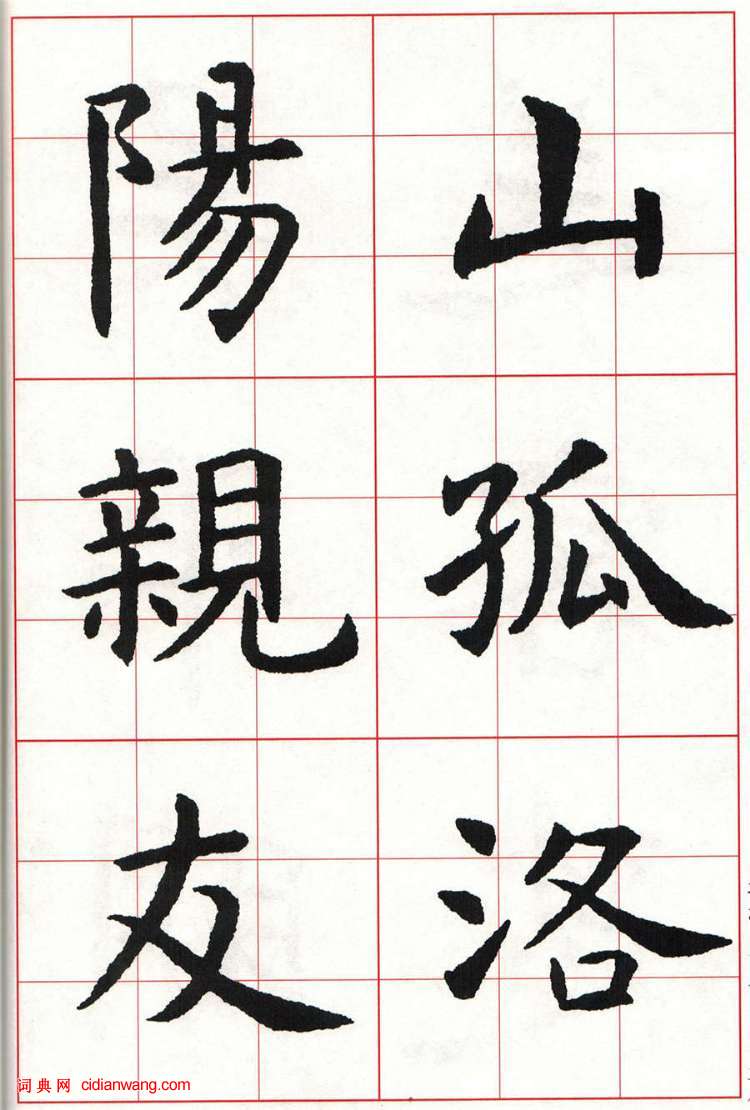 山孤洛
陽親友
词典网 cidianwang.com